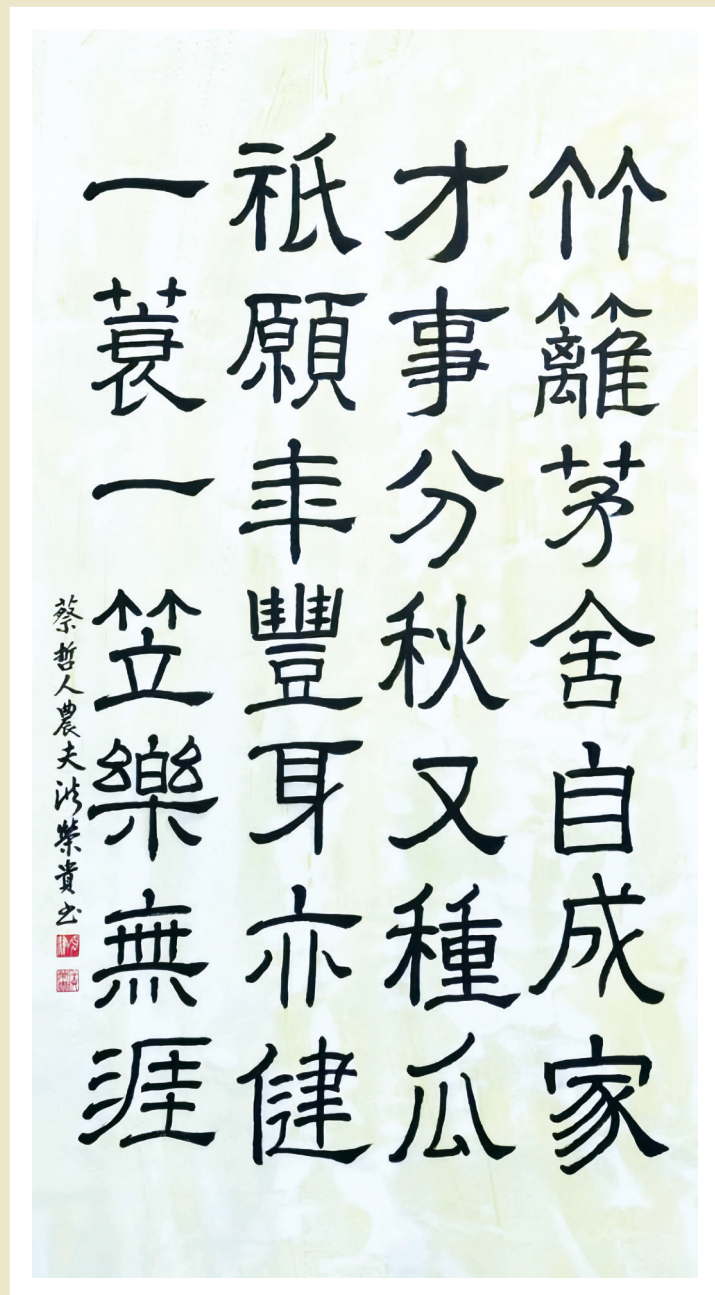 竹籬茅舍自成家
才事分秋又種瓜
祇願年豐身亦健
一蓑一笠樂無涯
蔡哲人農夫洪榮貴书